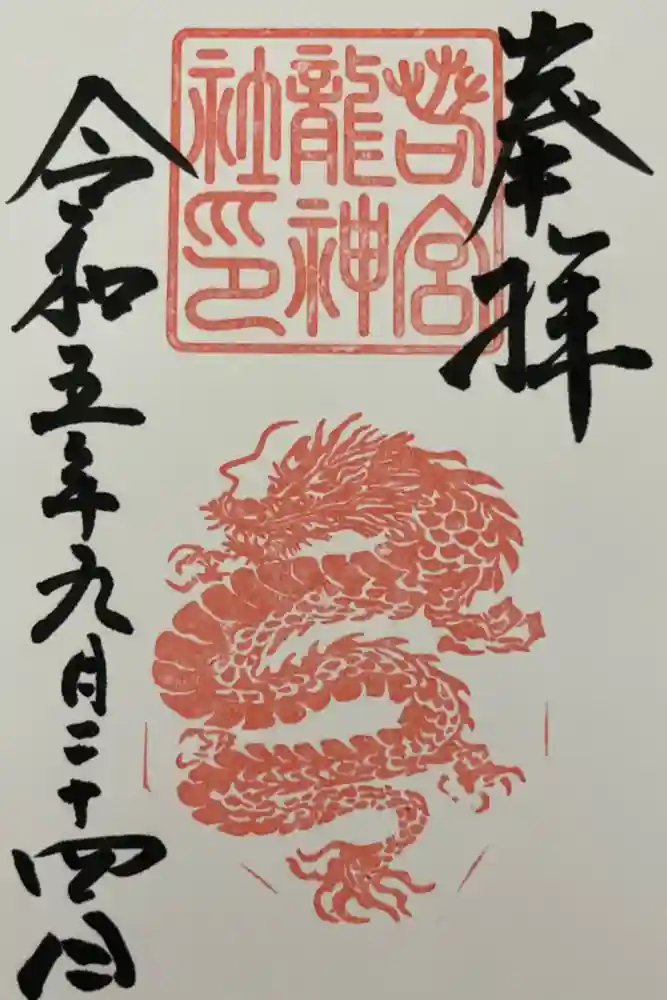 奉拝
若宮
龍神
社印
令和五年九月二十四日